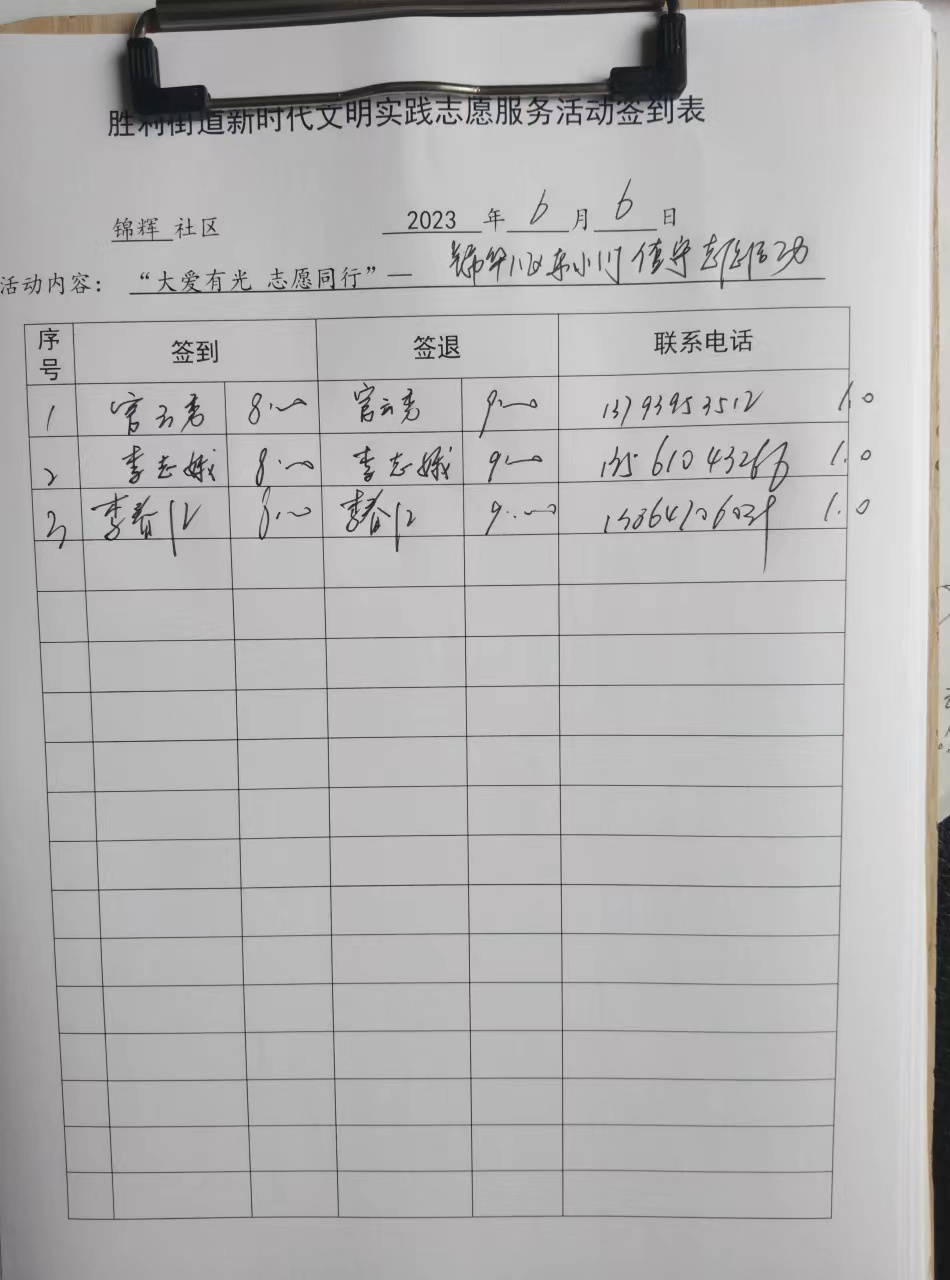 胜利街道新时代文明实践志愿服务活动签到表
锦辉 社区 2023 年 6 月 6 日
活动内容： “大爱有光 志愿同行”— 锦华八区东小门值守志愿活动
序号 签到 签退 联系电话
1 官云秀 8:00 官云秀 9:00 13793953512 1.0
2 李志娥 8:00 李志娥 9:00 1.0
3 李春 8:00 李春 9:00 1.0